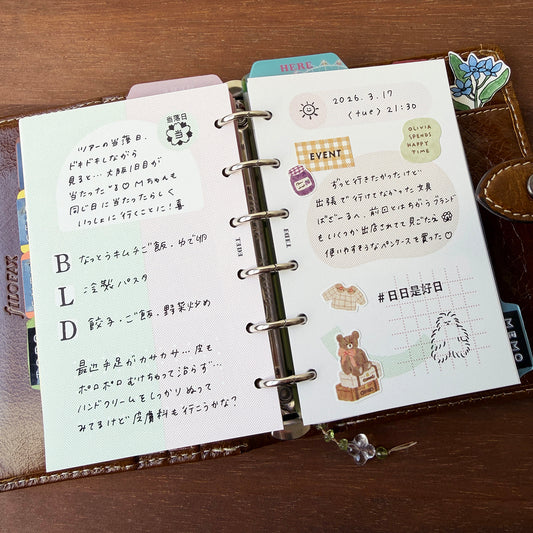 FILOFAX
当落日
当
ツアーの当落日、
ドキドキしながら
見ると…大阪1日目が
当たった〜!! Mちゃんも
同じ日に当たったらしく
いっしょに行くことに!喜
B なっとうキムチご飯・ゆで卵
L 冷製パスタ
D 餃子・ご飯・野菜炒め
最近手足がカサカサ…皮も
ボロボロむけちゃって治らず…
ハンドクリームをしっかりぬって
みてるけど皮膚科も行こうかな?
EDiT
HERE
2026.3.17
(tue) 21:30
OLIVIA
SPENDS
HAPPY
TIME
EVENT
ずっと行きたかったけど
出張で行けてなかった文具
ばざーるへ。前回とはちがうブランド
もいくつか出店されてて見ごたえ
使いやすそうなペンケースを買った♡
EDiT
#日日是好日
MEMO